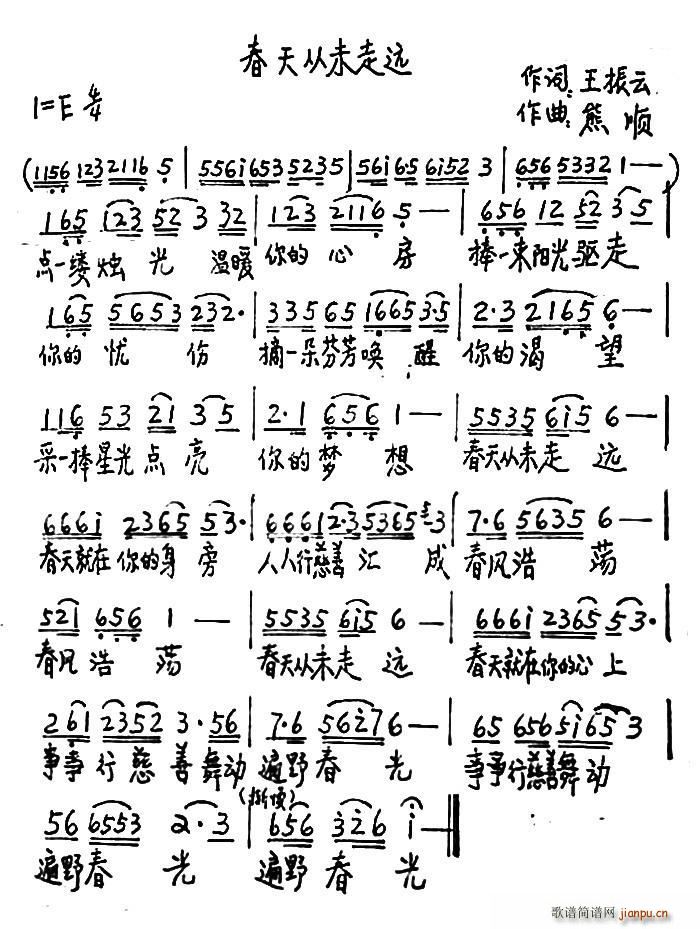 春天从未走远
作词:王振云
1=E 4/4
作曲:熊顺
(1156 123 2116 5 | 556i 653 5235 | 56i6·5 6i52 3 | 656 5332 1 — — )
165 123 52 3 32 | 123 2116 5 — | 656 12 52 35 |
点一缕烛光 温暖 你的心房 捧一束阳光驱走
165 5653 232· | 335 65 1665 3·5 | 2·3 2165 6 — |
你的忧伤 摘一朵芬芳唤醒 你的渴望
116 53 21 35 | 2·1 656 1 — | 5535 6i5 6 — |
采一捧星光点亮 你的梦想 春天从未走远
666i 2365 53· | 6661 2·3 5365 5 3 | 7·6 5635 6 — |
春天就在你的身旁 人人行慈善汇成 春风浩荡
521 656 1 — | 5535 6i5 6 — | 666i 2365 53· |
春风浩荡 春天从未走远 春天就在你的心上
261 2352 3·56 | 7·6 56i7 6 — | 65 656 5i65 3
事事行慈善舞动 遍野春光 事事行慈善舞动
(渐慢)
56 6553 2·3 | 656 326 i — ‖
遍野春光 遍野春光
歌谱简谱网
jianpu.cn